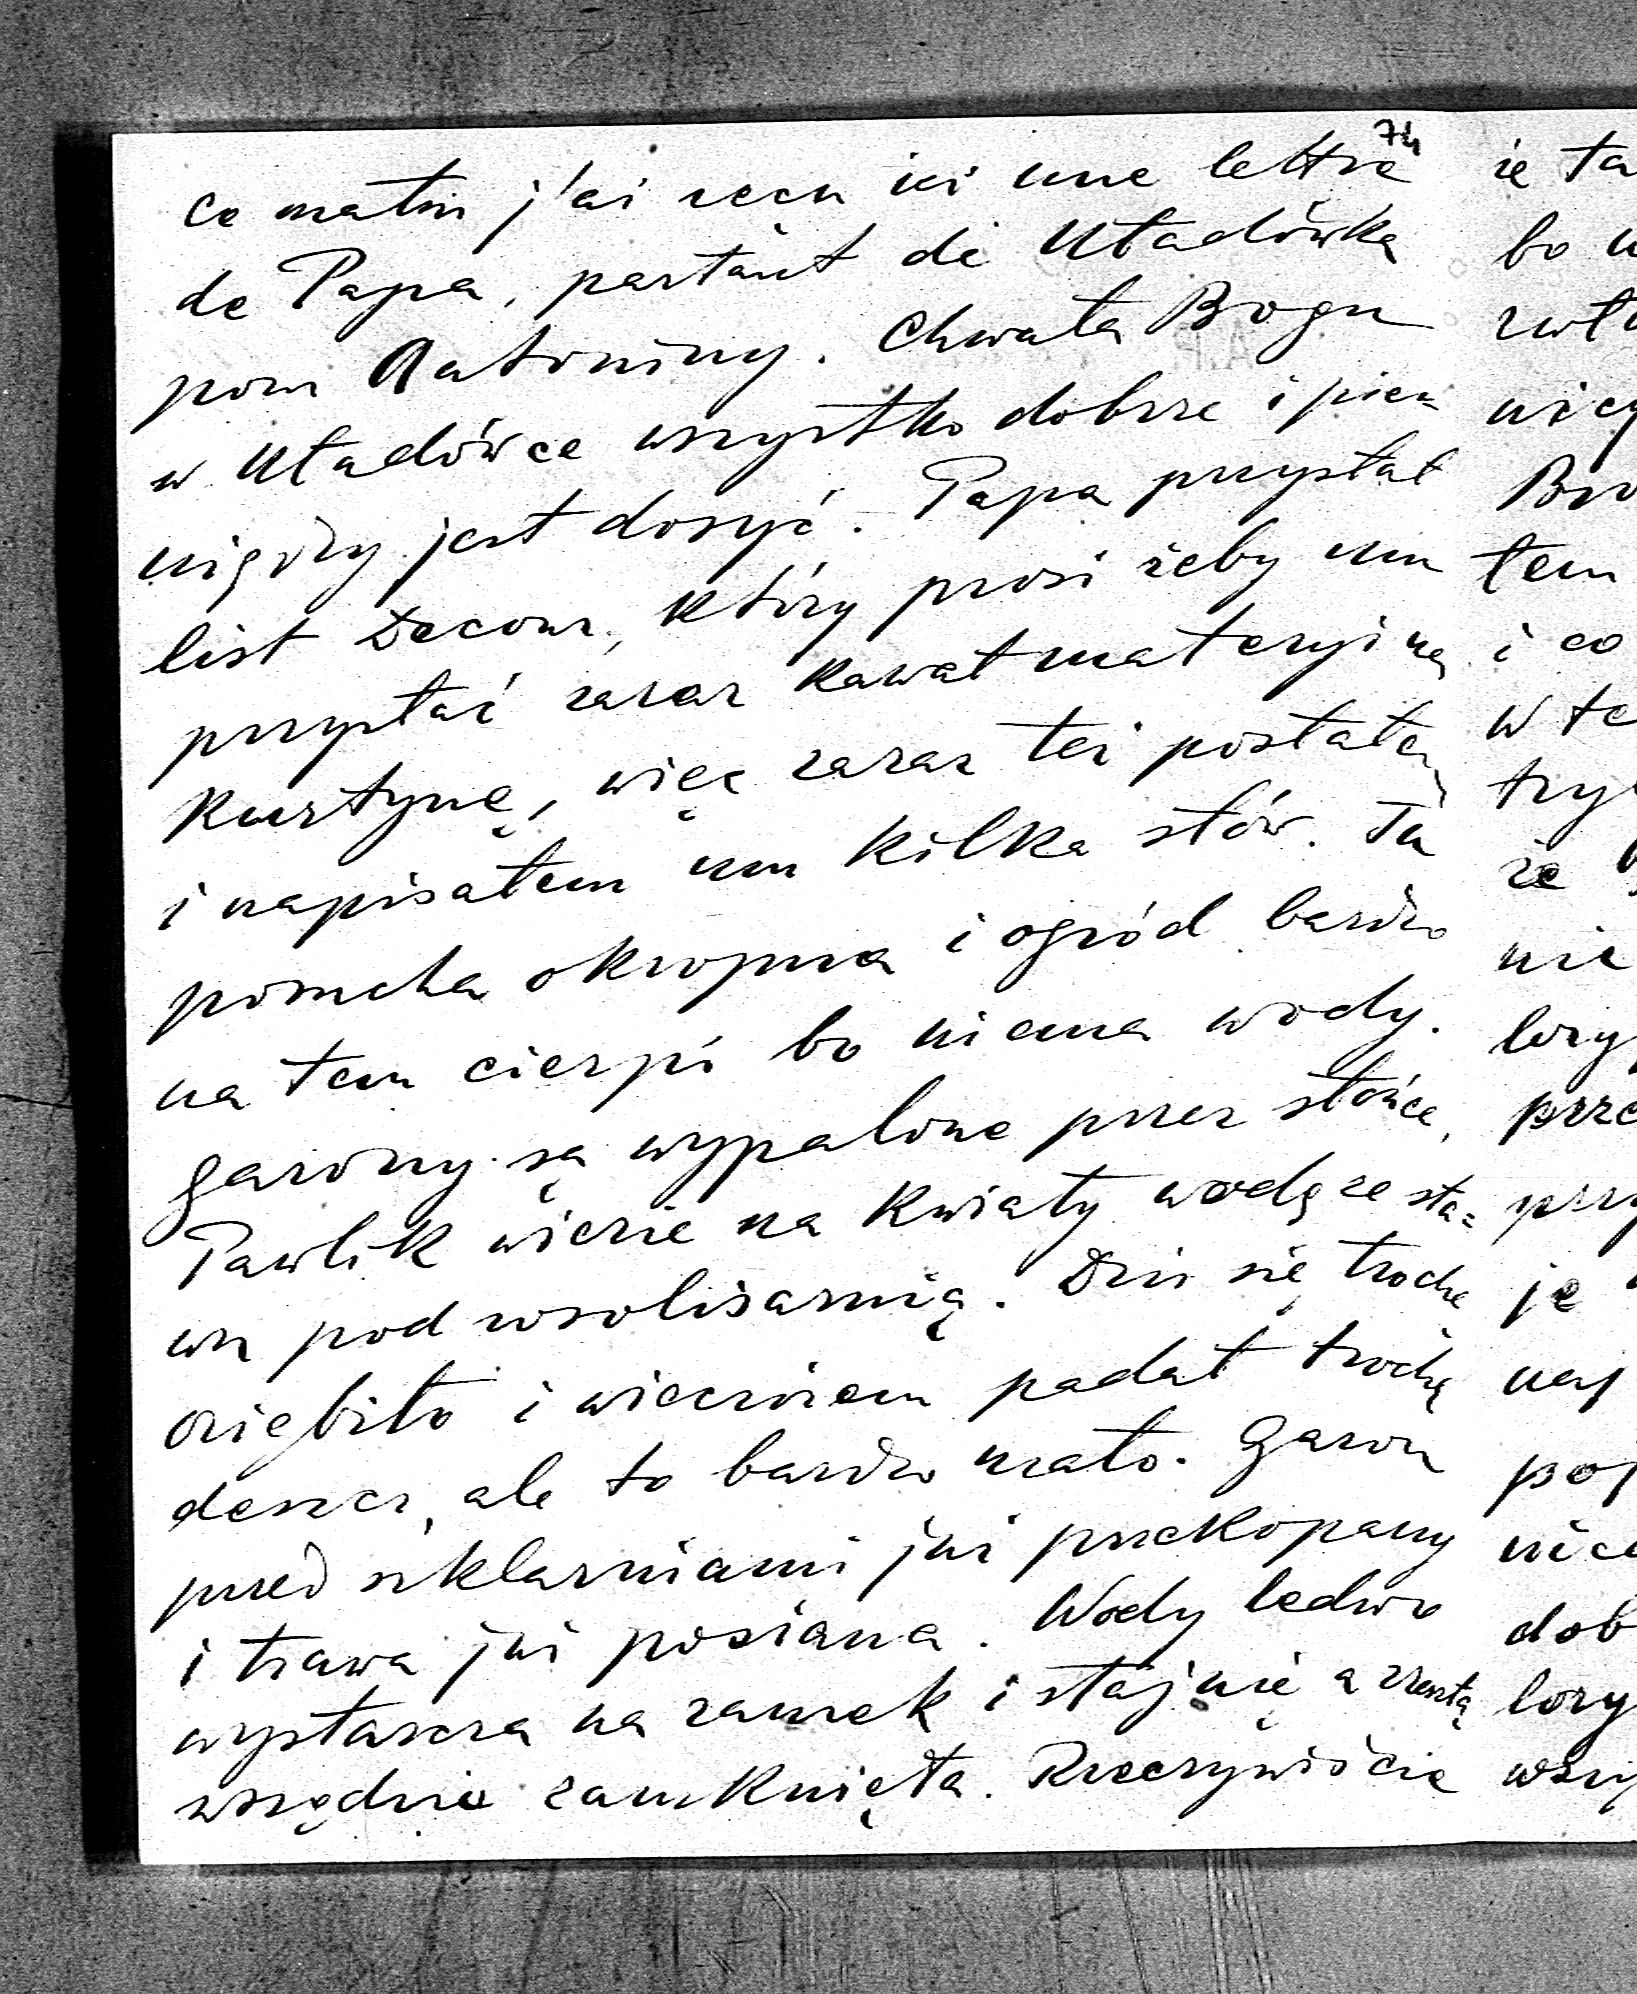 74
ce matin j'ai recu ici une lettre
de Papa, partant de Uładówka
pour Antoniny. Chwała Bogu
w Uładówce wszystko dobrze i pien=
niędzy jest dosyć. Papa przysłał
list Decour, który prosi żeby mu
przysłać zaraz kawał materyi na
kurtynę, więc zaraz też posłałem
i napisałem mu kilka słów. Tu
posucha okropna i ogród bardzo
na tem cierpi bo niema wody.
gazony są wypalone przez słońce,
Pawlik wiezie na kwiaty wodę ze sta=
wu pod wsolisarnią. Dziś się trochę
oziębiło i wieczorem padał trochę
deszcz, ale to bardzo mało. Gazon
przed szklarniami już przekopany
i trawa już posiana. Wody ledwo
wystarcza na zamek i stajnię a zresztą
wszędzie zamknięta. Rzeczywiście
że ta
bo
tem
i co
w te
że
nie
prze
przy
je
naj
poj
nice
dob